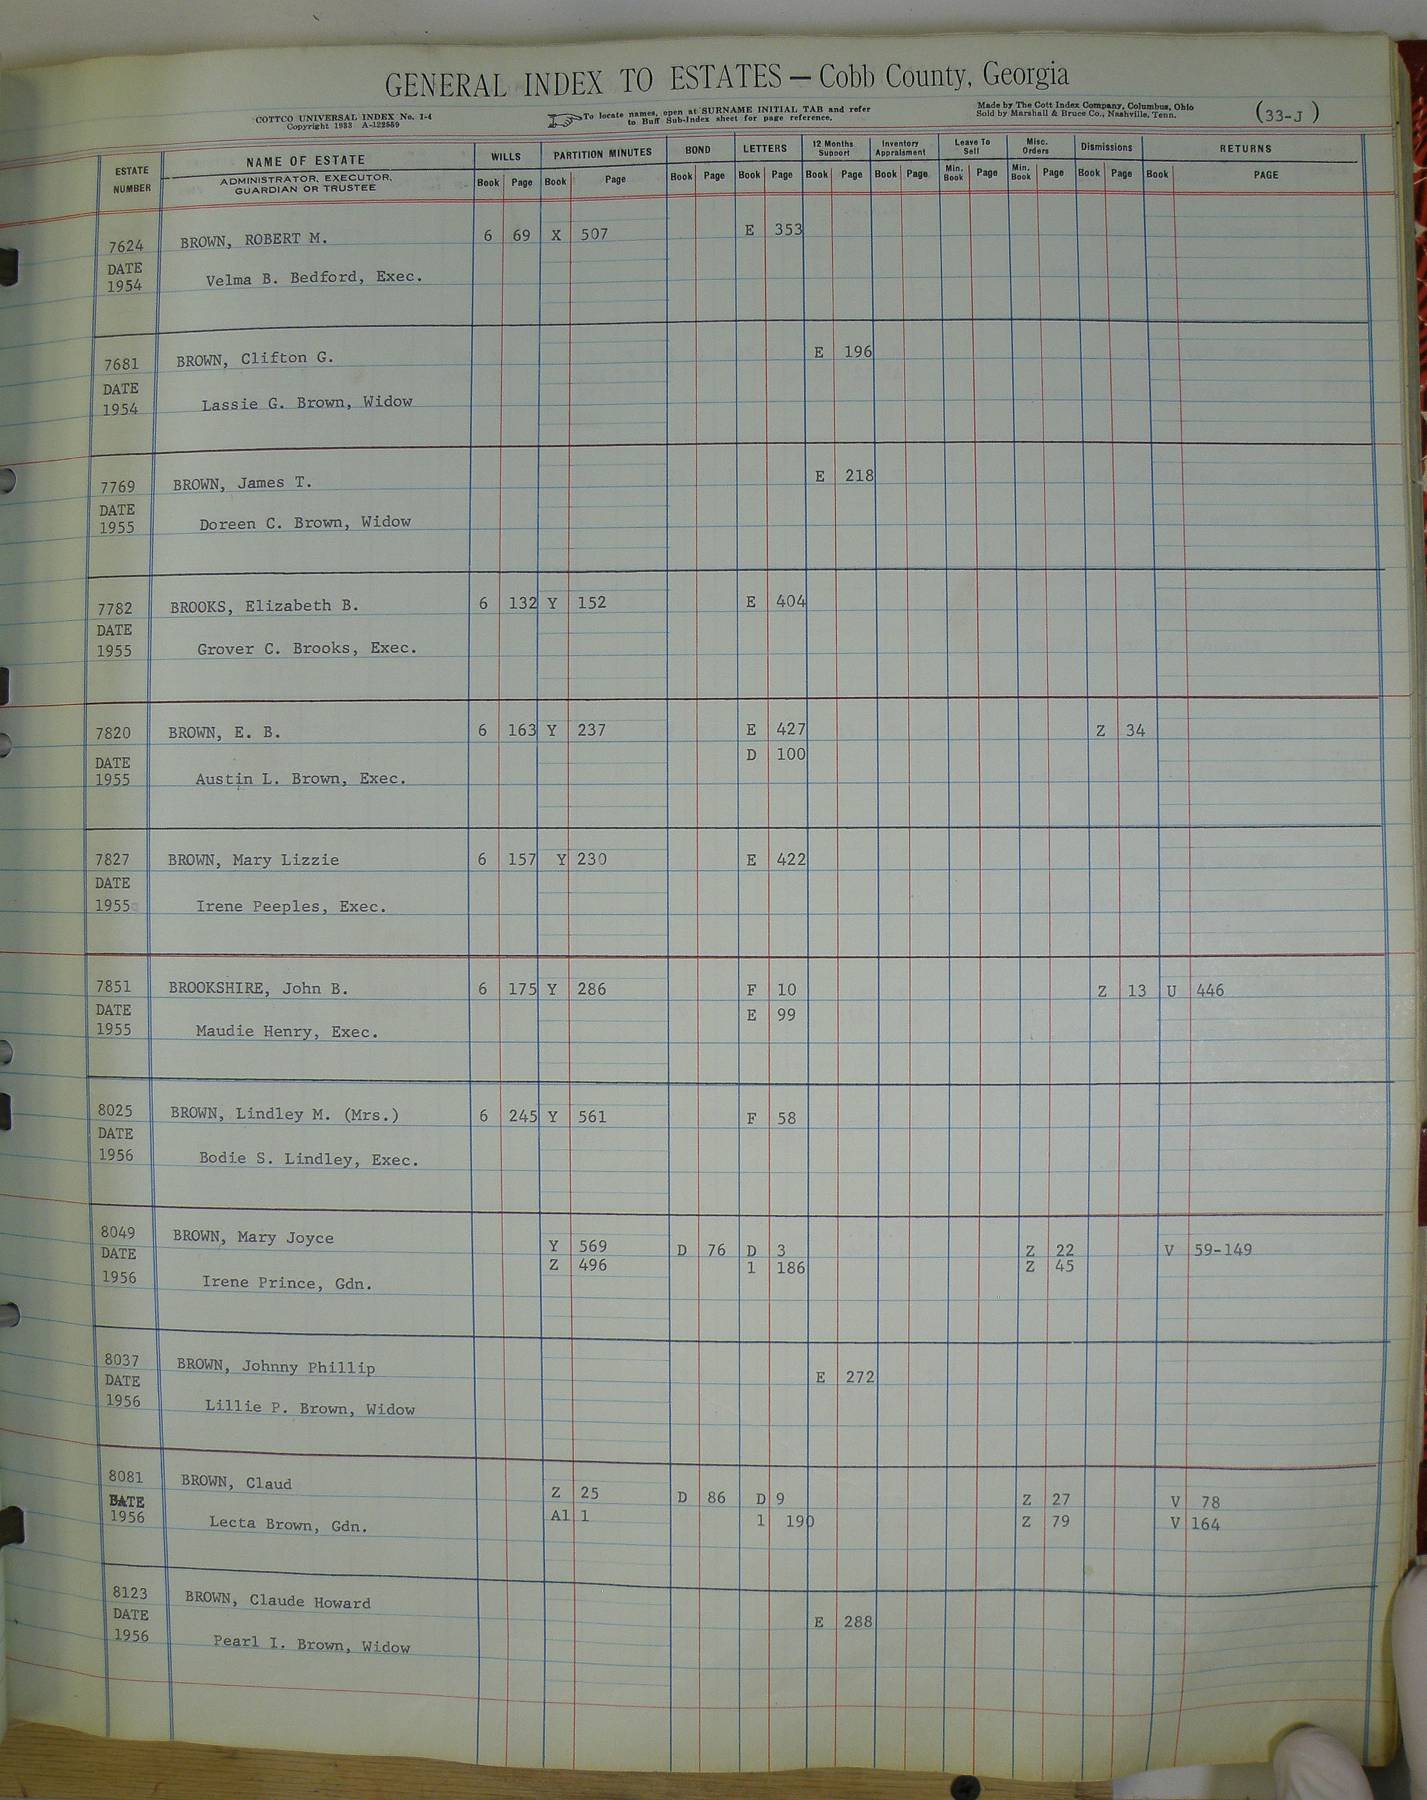 GENERAL INDEX TO ESTATES — Cobb County, Georgia
COTTCO UNIVERSAL INDEX No. 1-4
Copyright 1933 A-122559
To locate names, open at SURNAME INITIAL TAB and refer
to Buff Sub-Index sheet for page reference.
Made by The Cott Index Company, Columbus, Ohio
Sold by Marshall & Bruce Co., Nashville, Tenn.
(33-J)
ESTATE NUMBER NAME OF ESTATE WILLS PARTITION MINUTES BOND LETTERS 12 Months Support Inventory Appraisment Leave To Sell Misc. Orders Dismissions RETURNS
ADMINISTRATOR, EXECUTOR, GUARDIAN OR TRUSTEE Book Page Book Page Book Page Book Page Book Page Book Page Min. Book Page Min. Book Page Book Page Book PAGE
7624 BROWN, ROBERT M. 6 69 X 507 E 353
DATE
1954 Velma B. Bedford, Exec.
7681 BROWN, Clifton G. E 196
DATE
1954 Lassie G. Brown, Widow
7769 BROWN, James T. E 218
DATE
1955 Doreen C. Brown, Widow
7782 BROOKS, Elizabeth B. 6 132 Y 152 E 404
DATE
1955 Grover C. Brooks, Exec.
7820 BROWN, E. B. 6 163 Y 237 E 427 Z 34
DATE D 100
1955 Austin L. Brown, Exec.
7827 BROWN, Mary Lizzie 6 157 Y 230 E 422
DATE
1955 Irene Peeples, Exec.
7851 BROOKSHIRE, John B. 6 175 Y 286 F 10 Z 13 U 446
DATE E 99
1955 Maudie Henry, Exec.
8025 BROWN, Lindley M. (Mrs.) 6 245 Y 561 F 58
DATE
1956 Bodie S. Lindley, Exec.
8049 BROWN, Mary Joyce Y 569 D 76 D 3 Z 22 V 59-149
DATE Z 496 1 186 Z 45
1956 Irene Prince, Gdn.
8037 BROWN, Johnny Phillip E 272
DATE
1956 Lillie P. Brown, Widow
8081 BROWN, Claud Z 25 D 86 D 9 Z 27 V 78
DATE
1956 Lecta Brown, Gdn. A1 1 1 190 Z 79 V 164
8123 BROWN, Claude Howard E 288
DATE
1956 Pearl I. Brown, Widow